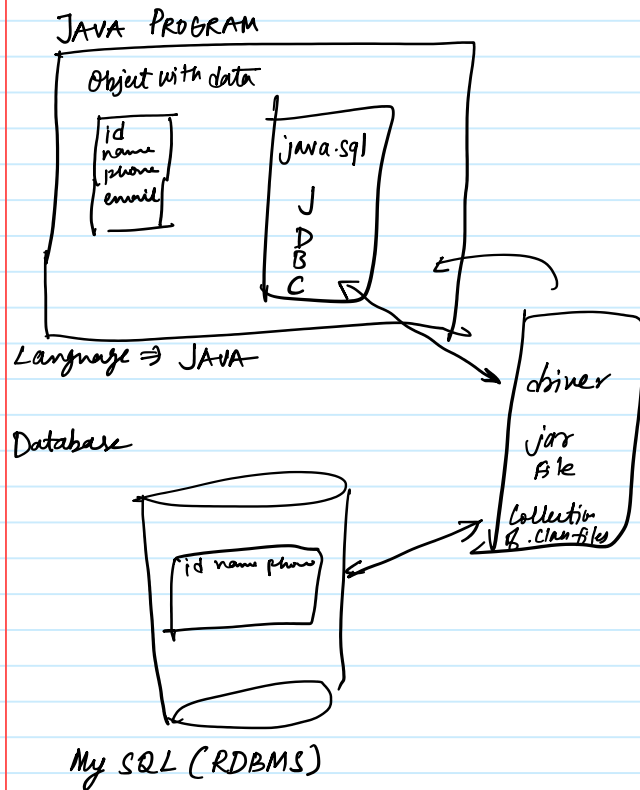 JAVA PROGRAM
Object with data
id
name
phone
email
java.sql
J
D
B
C
Language ⇒ JAVA
driver
jar
file
Collection
of .class files
Database
id name phone
My SQL (RDBMS)